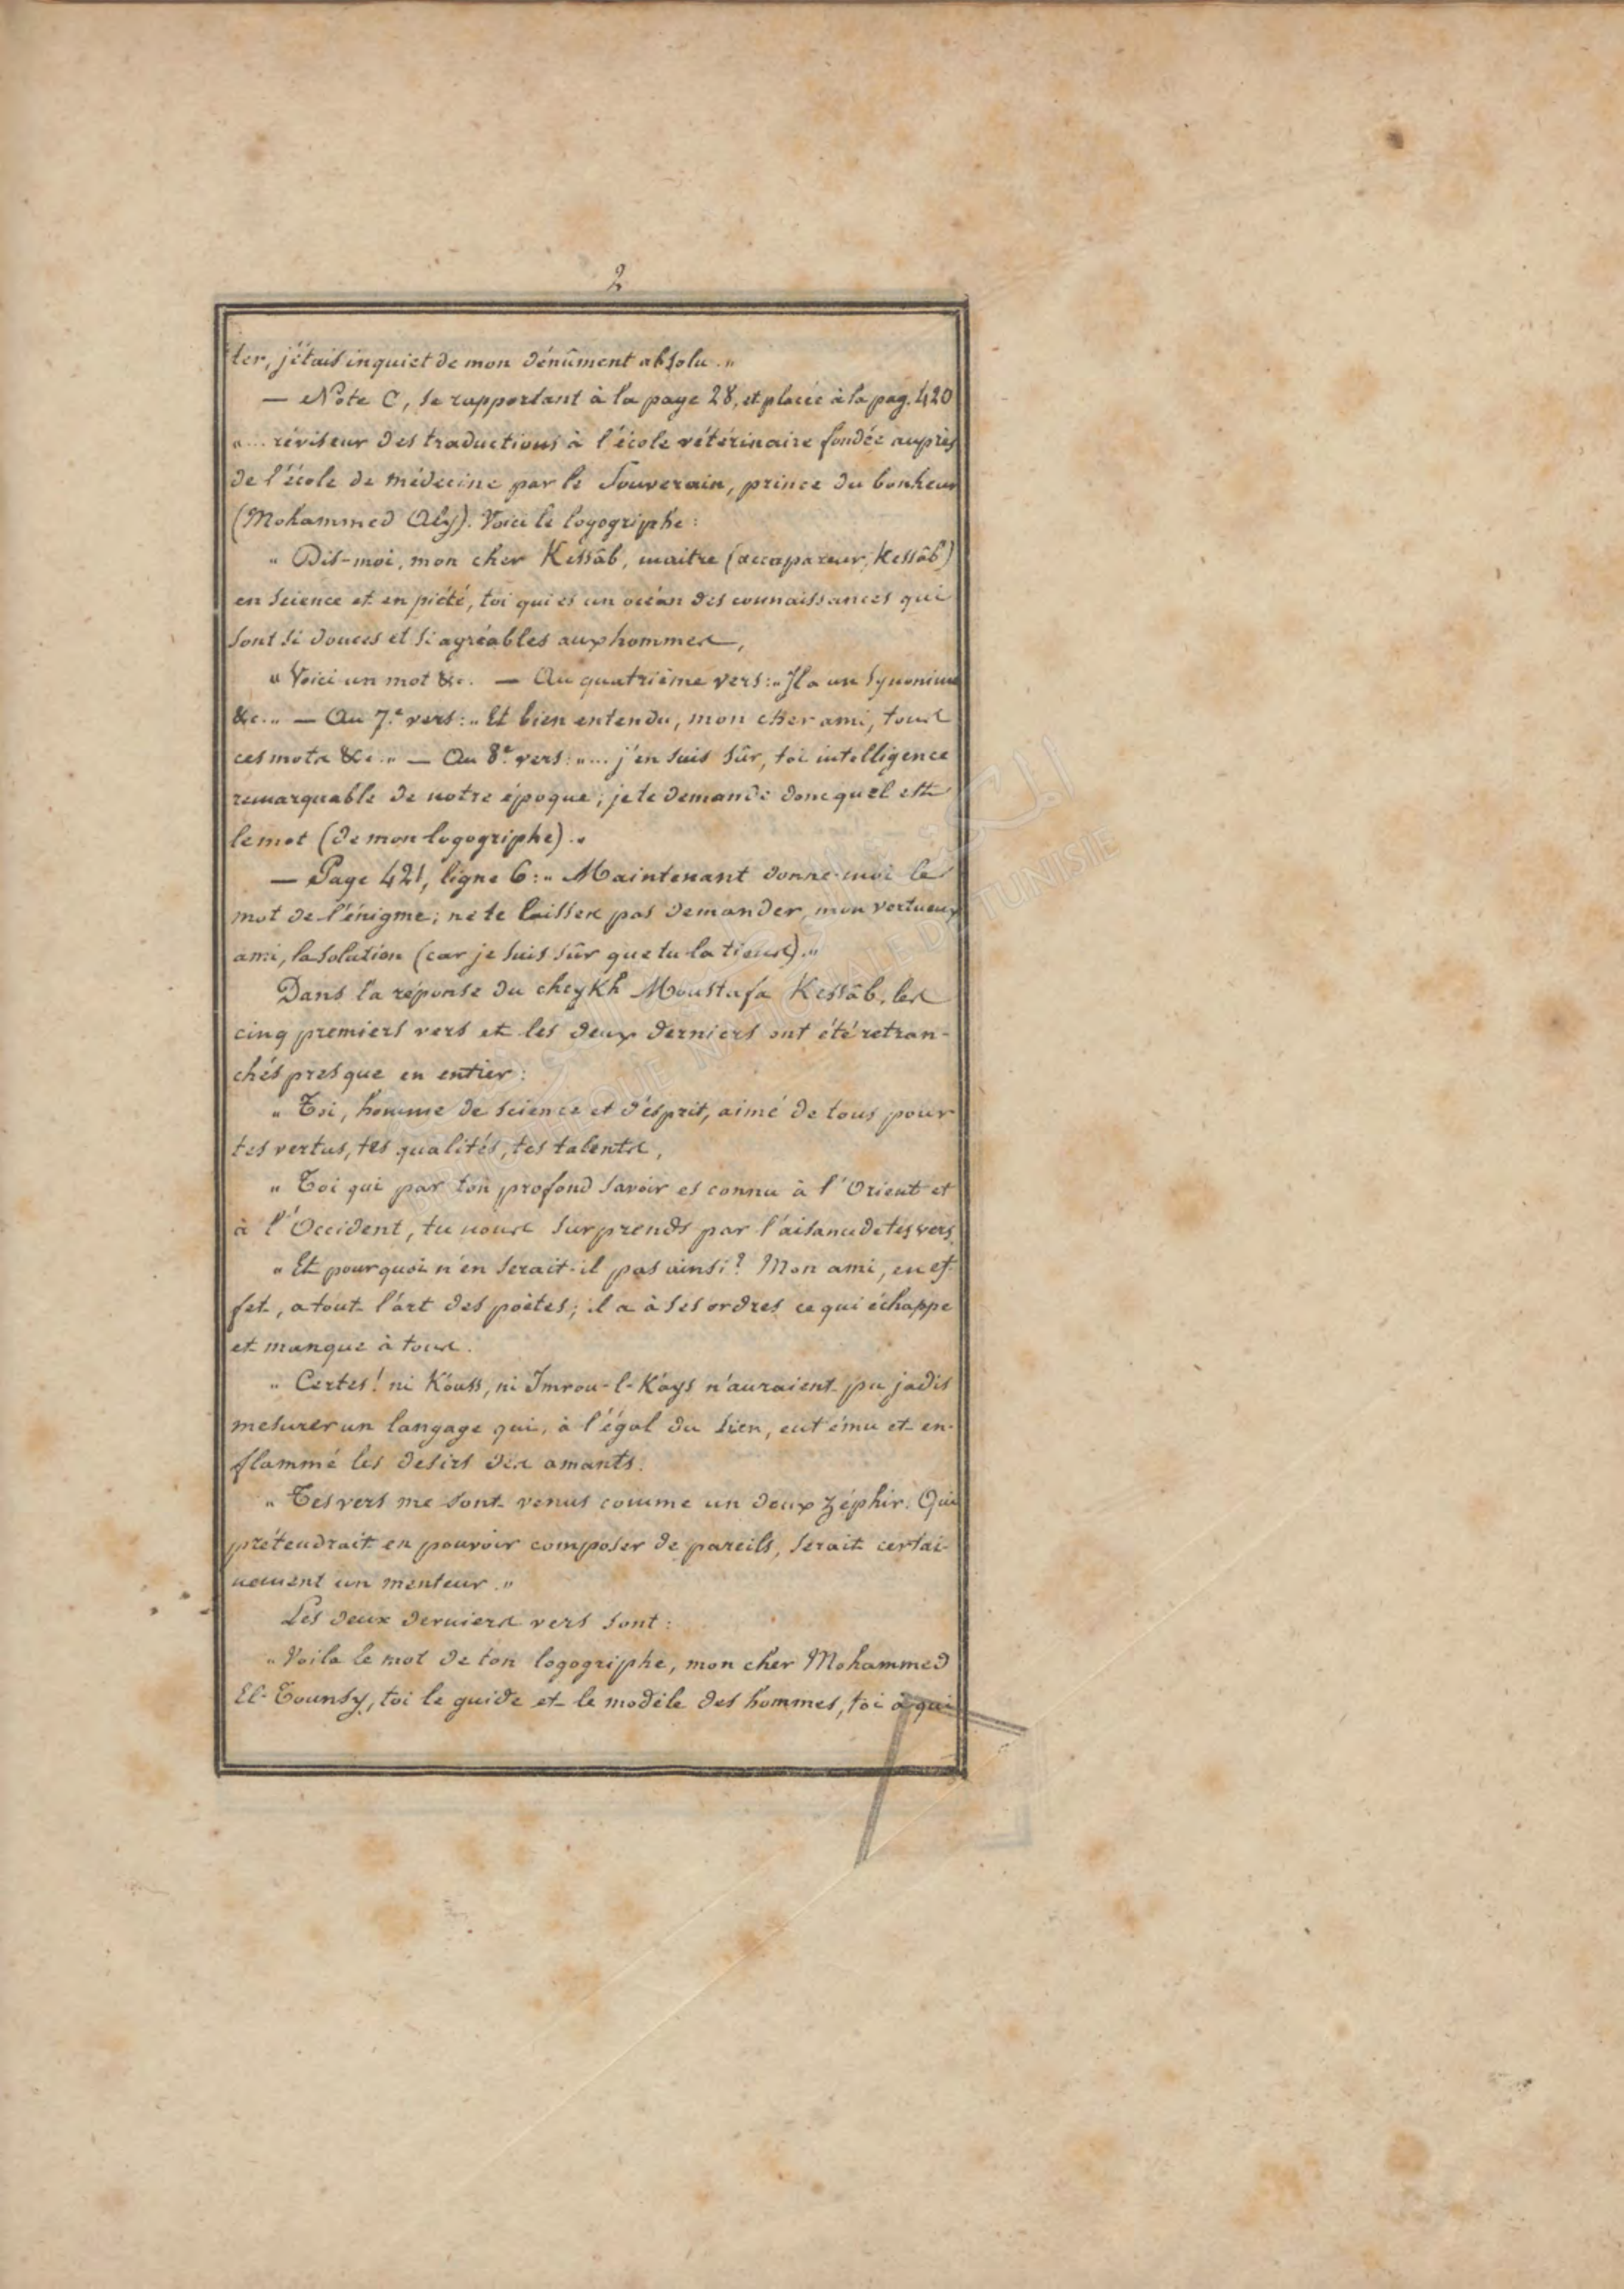 2
ter, j'étais inquiet de mon dénûment absolu."
— Note C, se rapportant à la page 28, et placée à la pag. 420
"... réviseur des traductions à l'école vétérinaire fondée auprès
de l'école de médecine par le Souverain, prince du bonheur
(Mohammed Aly). Voici le logogriphe :
" Dis-moi, mon cher Kessâb, maitre (accapareur, Kessâb)
en science et en piété, toi qui es un océan des connaissances qui
sont si douces et si agréables aux hommes,
" Voici un mot &c. — Au quatrième vers : " Il a un synonime
&c. " — Au 7.e vers : " Et bien entendu, mon cher ami, tous
ces mots &c. " — Au 8.e vers : "... j'en suis sûr, toi intelligence
remarquable de notre époque ; je te demande donc quel est
le mot (de mon logogriphe)."
— Page 421, ligne 6 : " Maintenant donne-moi le
mot de l'énigme ; ne te laisses pas demander, mon vertueux
ami, la solution (car je suis sûr que tu la tiens)."
Dans la réponse du cheykh Moustafa Kessâb, les
cinq premiers vers et les deux derniers ont été retran-
chés presque en entier :
" Toi, homme de science et d'esprit, aimé de tous pour
tes vertus, tes qualités, tes talents,
" Toi qui par ton profond savoir es connu à l'Orient et
à l'Occident, tu nous surprends par l'aisance de tes vers.
" Et pourquoi n'en serait-il pas ainsi ? Mon ami, en ef-
fet, a tout l'art des poètes ; il a à ses ordres ce qui échappe
et manque à tous.
" Certes ! ni Kouss, ni Imrou-l-Kays n'auraient pu jadis
mesurer un langage qui, à l'égal du sien, eut ému et en-
flammé les desirs des amants.
" Tes vers me sont venus comme un doux zéphir. Qui
prétendrait en pouvoir composer de pareils, serait certai-
nement un menteur."
Les deux derniers vers sont :
" Voila le mot de ton logogriphe, mon cher Mohammed
El-Tounsy, toi le guide et le modèle des hommes, toi à qui
BIBLIOTHEQUE NATIONALE DE TUNISIE